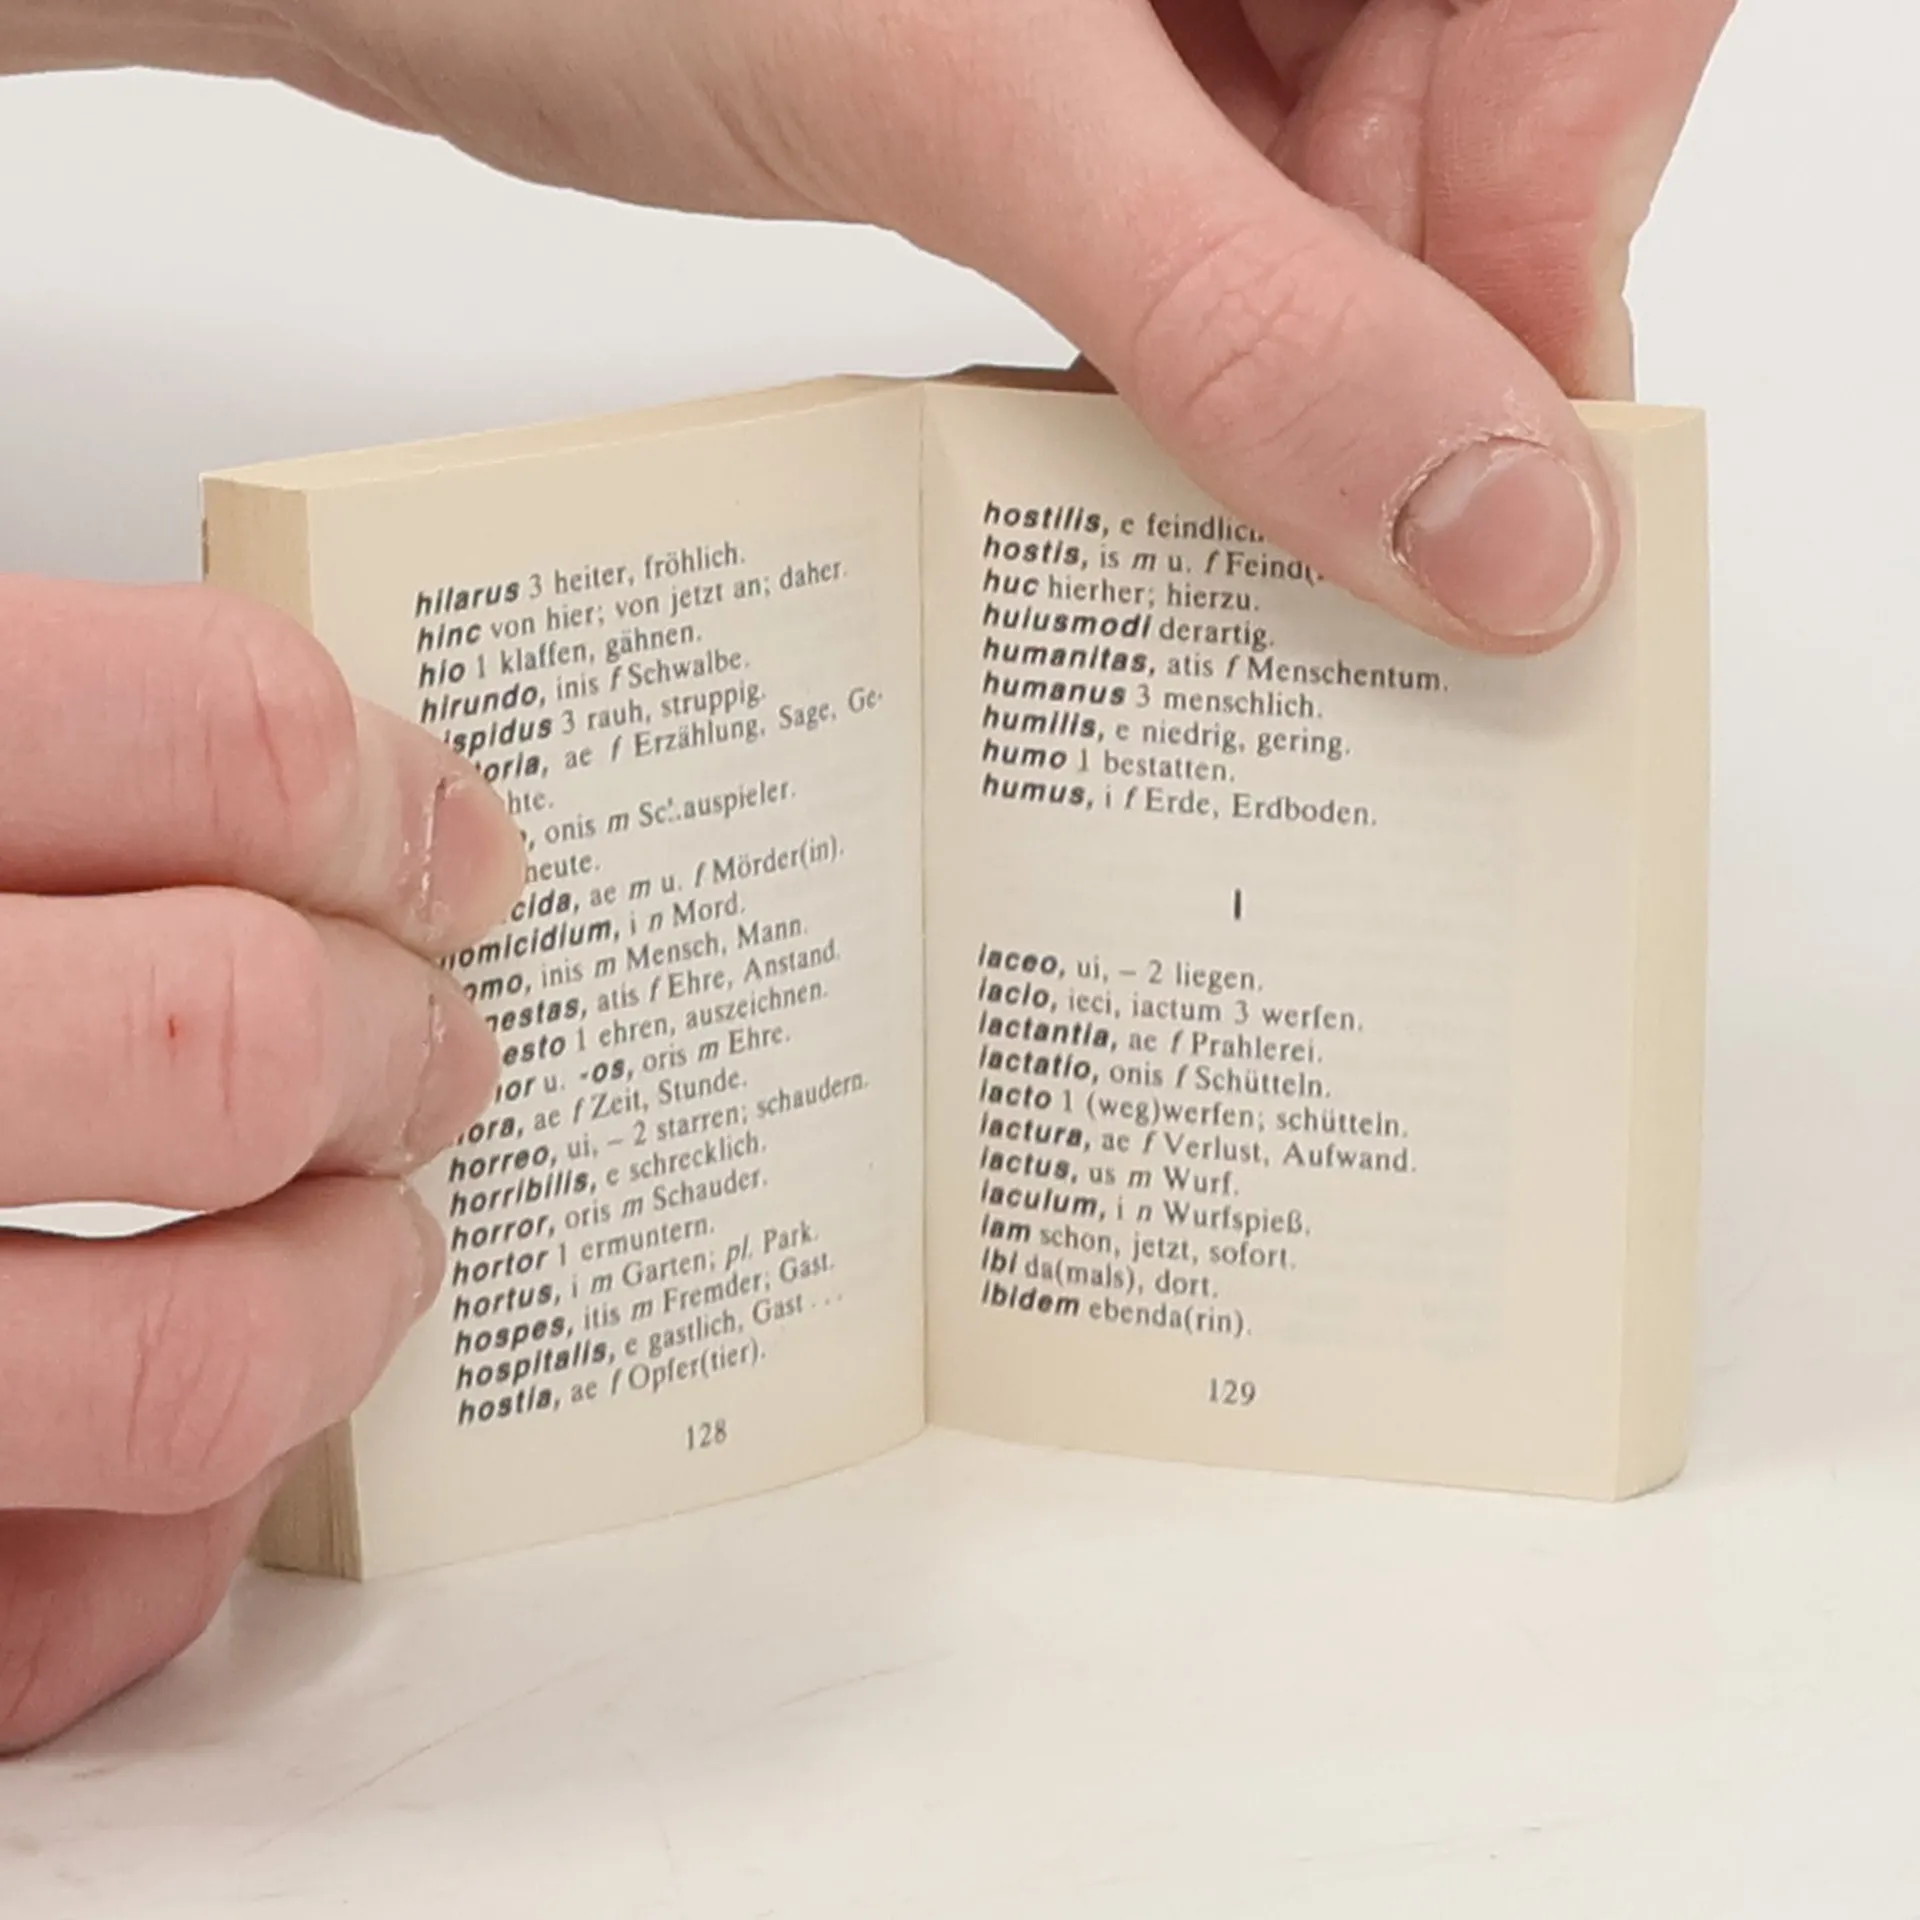 hilarus 3 heiter, fröhlich.
hinc von hier; von jetzt an; daher.
hio 1 klaffen, gähnen.
hirundo, inis f Schwalbe.
3 rauh, struppig.
ae f Erzählung, Sage, Ge-
onis m Schauspieler.
heute.
ae m u. f Mörder(in).
homicidium, i n Mord.
inis m Mensch, Mann.
atis f Ehre, Anstand.
1 ehren, auszeichnen.
u. -os, oris m Ehre.
hora, ae f Zeit, Stunde.
horreo, ui, – 2 starren; schaudern.
horribilis, e schrecklich.
horror, oris m Schauder.
hortor 1 ermuntern.
hortus, i m Garten; pl. Park.
hospes, itis m Fremder; Gast.
hospitalis, e gastlich, Gast ...
hostia, ae f Opfer(tier).
128
hostilis, e feindlich.
hostis, is m u. f
huc hierher; hierzu.
huiusmodi derartig.
humanitas, atis f Menschentum.
humanus 3 menschlich.
humilis, e niedrig, gering.
humo 1 bestatten.
humus, i f Erde, Erdboden.
I
iaceo, ui, – 2 liegen.
iacio, ieci, iactum 3 werfen.
iactantia, ae f Prahlerei.
iactatio, onis f Schütteln.
iacto 1 (weg)werfen; schütteln.
iactura, ae f Verlust, Aufwand.
iactus, us m Wurf.
iaculum, i n Wurfspieß.
iam schon, jetzt, sofort.
ibi da(mals), dort.
ibidem ebenda(rin).
129